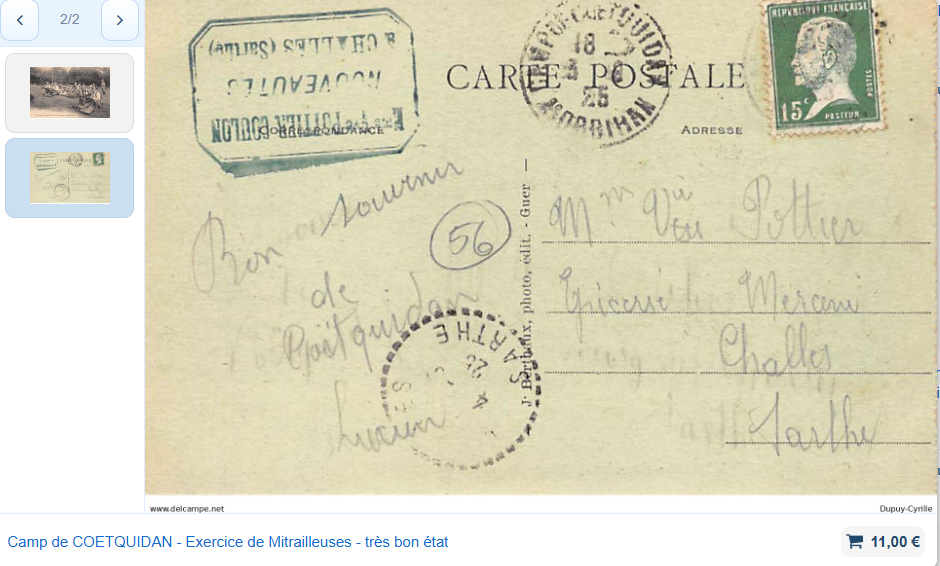 2/2
Ems Vve POTTIER-COULON
NOUVEAUTÉS
à CHALLES (Sarthe)
CAMP DE COETQUIDAN
18
25
MORBIHAN
RÉPUBLIQUE FRANÇAISE
POSTES
15c
PASTEUR
CARTE POSTALE
CORRESPONDANCE
ADRESSE
Bon souvenir
de
Coëtquidan
Lucien
56
SARTHE
4
25
J. Berthaux, photo, édit. - Guer
Mme Vve Pottier
Epicerie Mercerie
Challes
Sarthe
www.delcampe.net
Dupuy-Cyrille
Camp de COETQUIDAN - Exercice de Mitrailleuses - très bon état
11,00 €